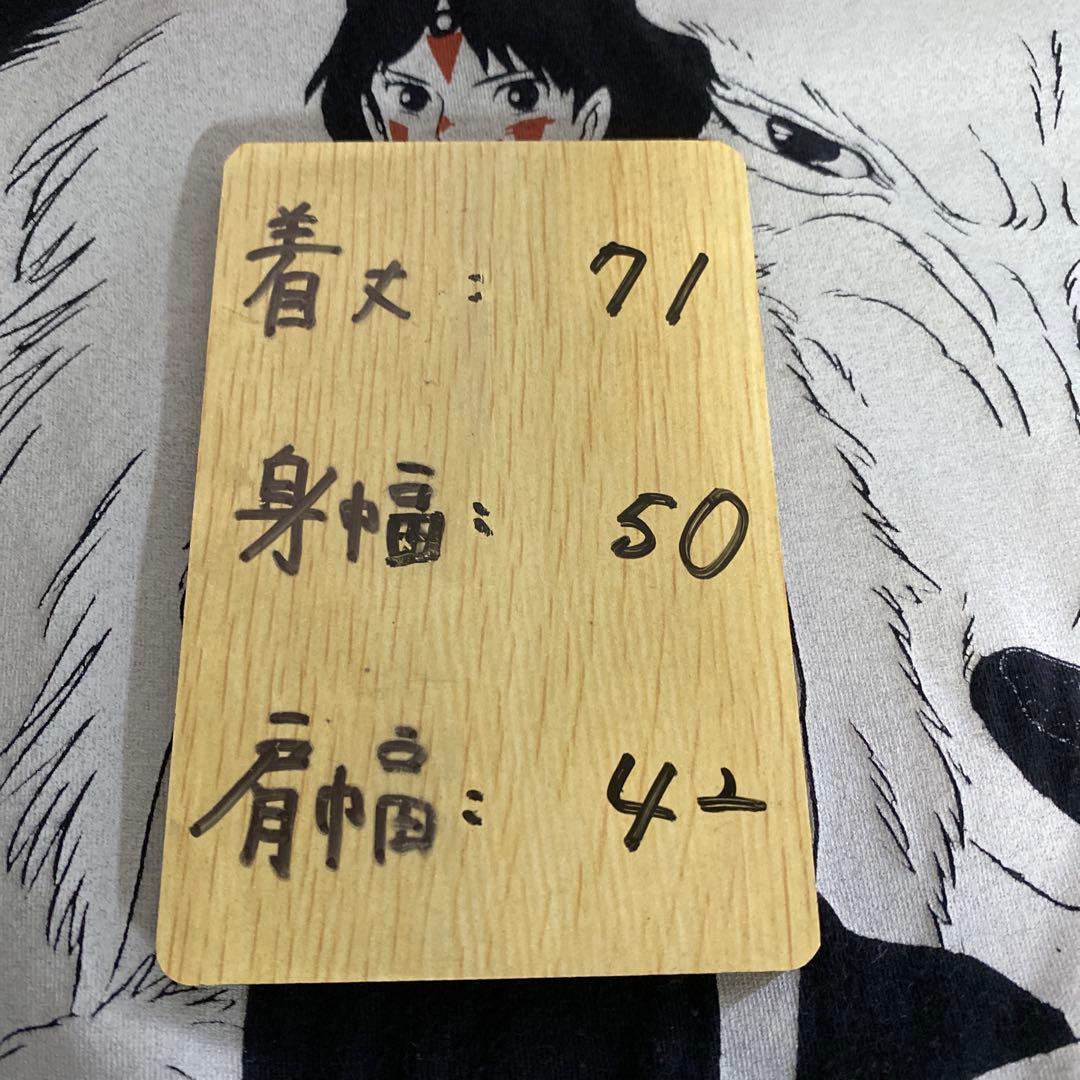 着丈: 71
身幅: 50
肩幅: 42